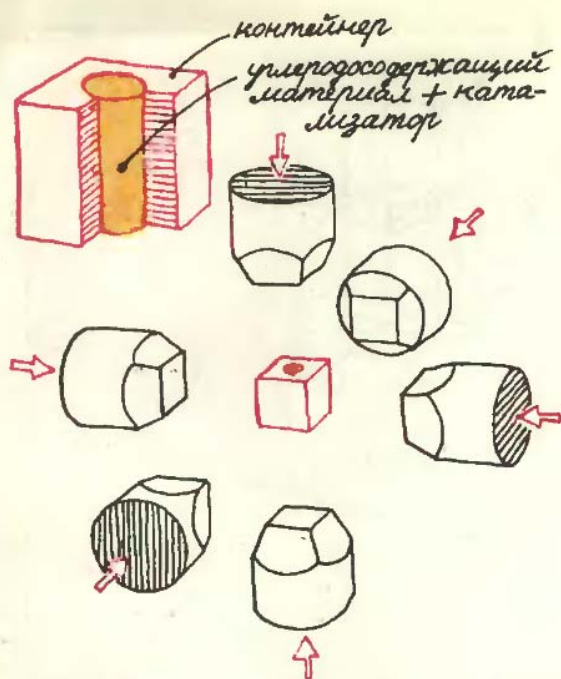 контейнер
углеродосодержащий
материал + ката-
лизатор